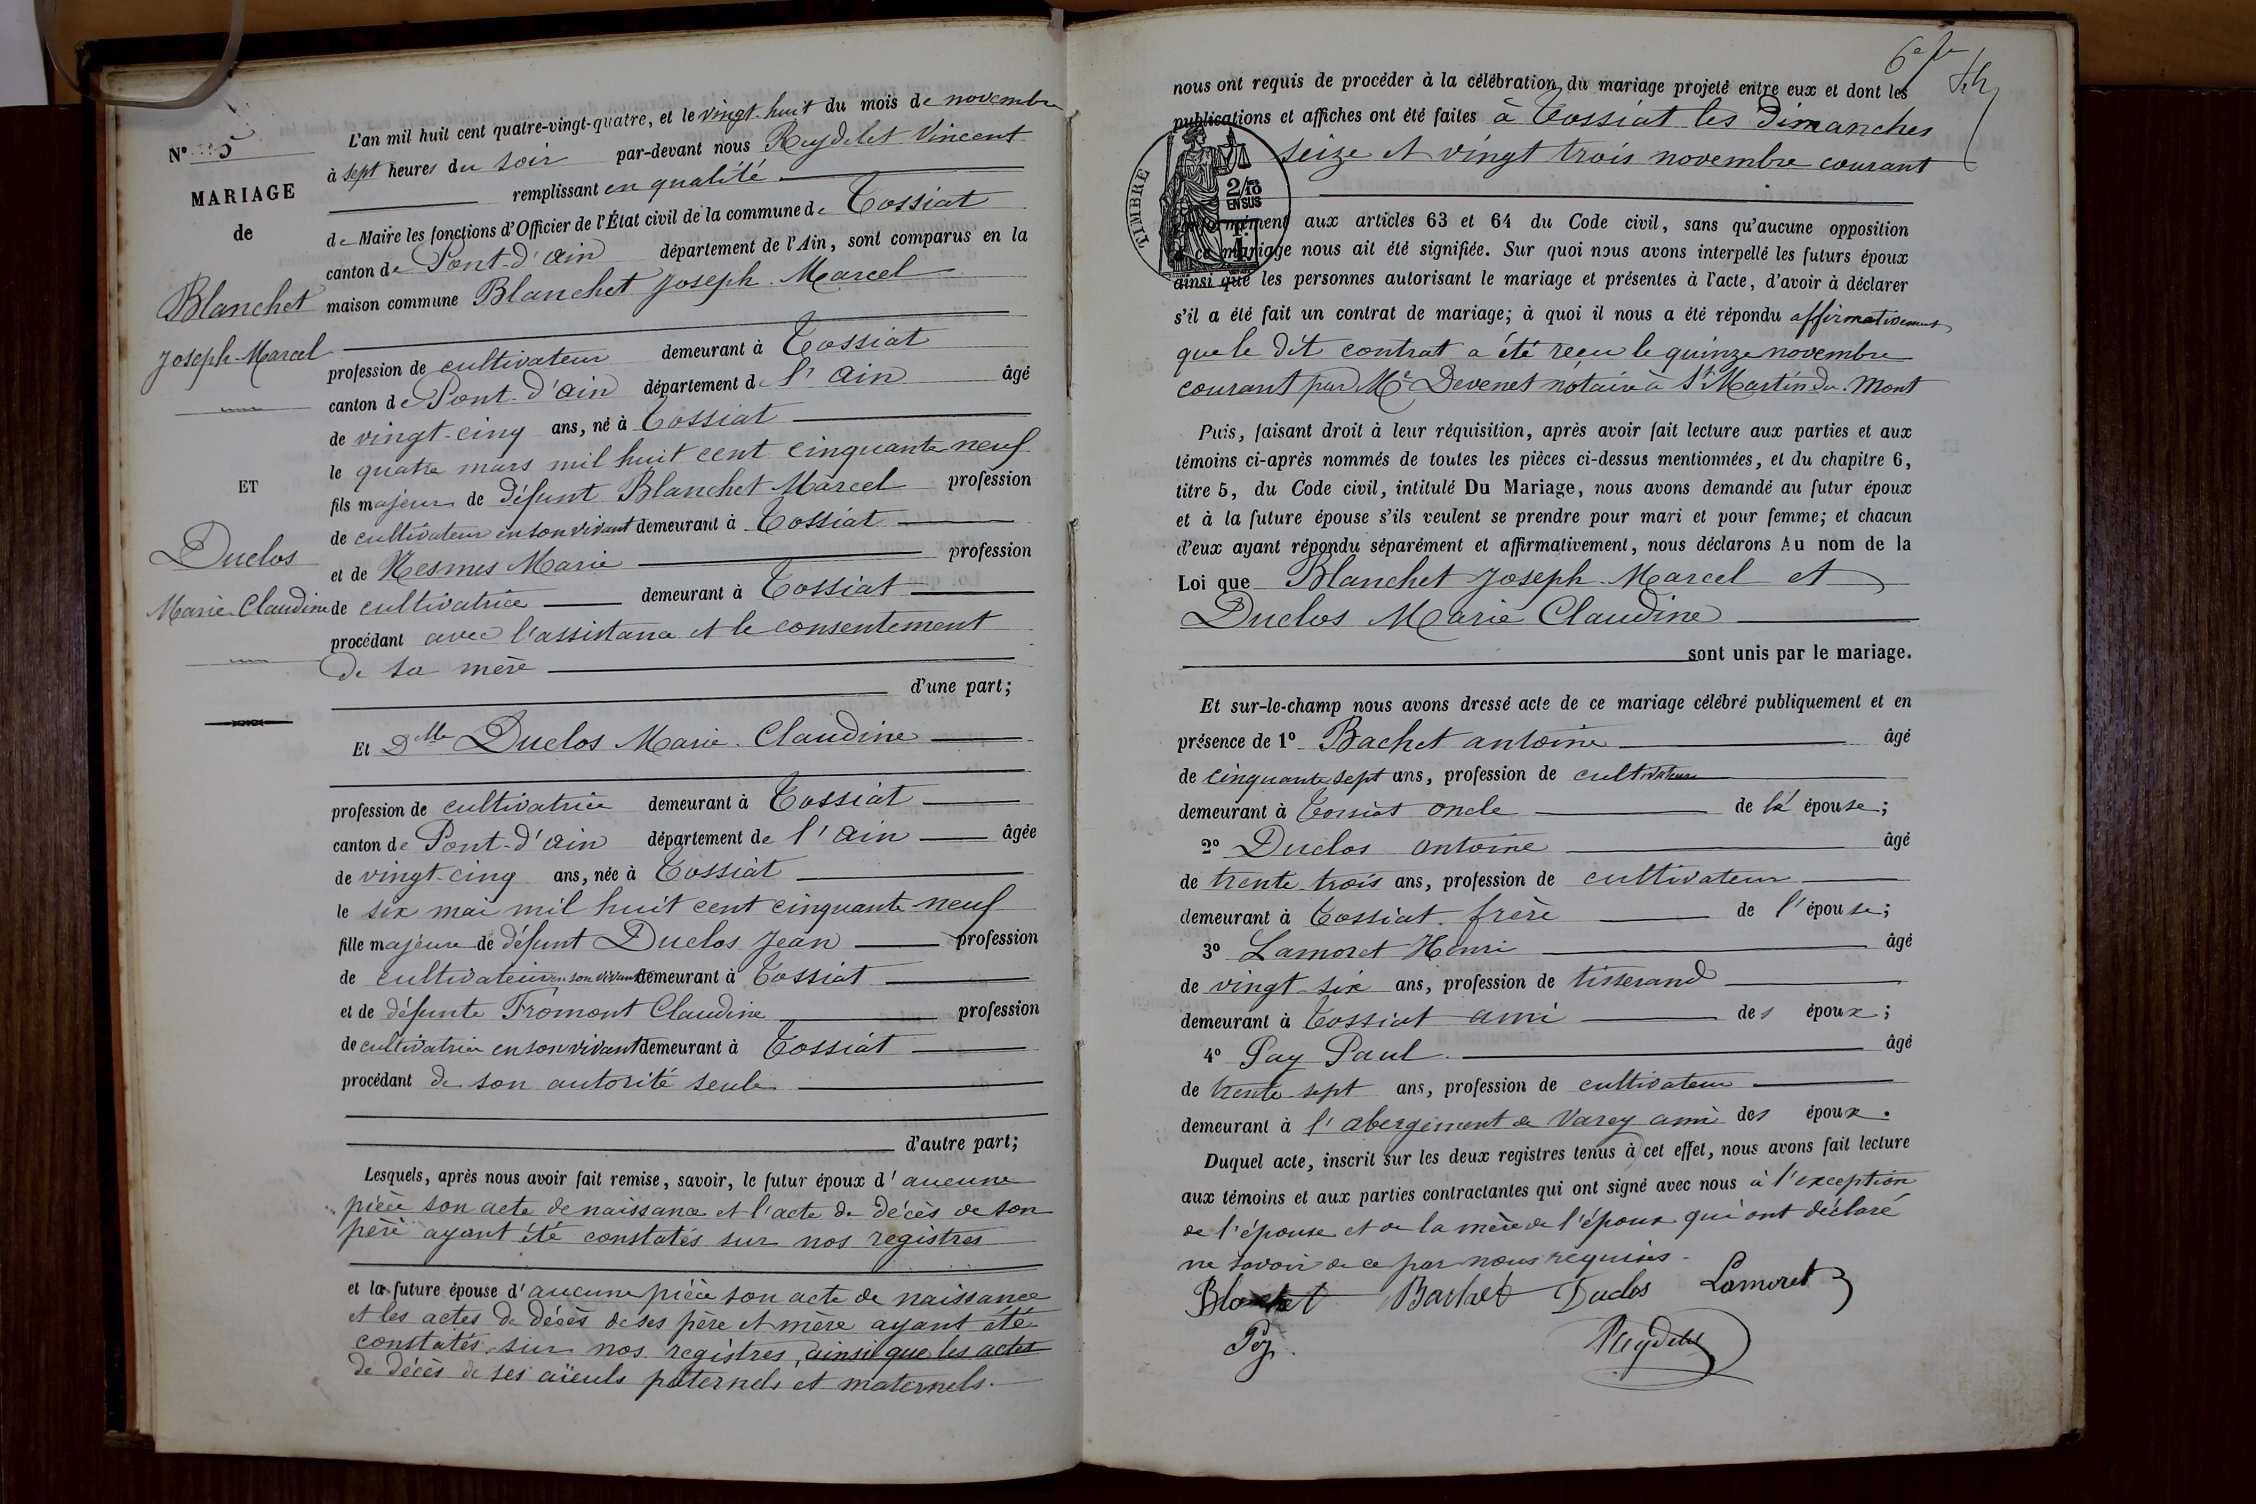 N° 5
MARIAGE
de
Blanchet
Joseph-Marcel
ET
Duclos
Marie-Claudine
L'an mil huit cent quatre-vingt-quatre, et le vingt-huit du mois de novembre
à sept heures du soir par-devant nous Reydelet Vincent
remplissant en qualité
de Maire les fonctions d'Officier de l'État civil de la commune de Tossiat
canton de Pont-d'ain département de l'Ain, sont comparus en la
maison commune Blanchet Joseph-Marcel
profession de cultivateur demeurant à Tossiat
canton de Pont-d'ain département de l'ain âgé
de vingt-cinq ans, né à Tossiat
le quatre mars mil huit cent cinquante neuf
fils majeur de défunt Blanchet Marcel profession
de cultivateur en son vivant demeurant à Tossiat
et de Nesmes Marie profession
de cultivatrice demeurant à Tossiat
procédant avec l'assistance et le consentement
de sa mère
d'une part;
Et Dlle Duclos Marie-Claudine
profession de cultivatrice demeurant à Tossiat
canton de Pont-d'ain département de l'ain âgée
de vingt-cinq ans, née à Tossiat
le six mai mil huit cent cinquante-neuf
fille majeure de défunt Duclos Jean profession
de cultivateur en son vivant demeurant à Tossiat
et de défunte Fromont Claudine profession
de cultivatrice en son vivant demeurant à Tossiat
procédant de son autorité seule
d'autre part;
Lesquels, après nous avoir fait remise, savoir, le futur époux d'aucune
pièce son acte de naissance et l'acte de décès de son
père ayant été constatés sur nos registres
et la future épouse d'aucune pièce son acte de naissance
et les actes de décès de ses père et mère ayant été
constatés sur nos registres, ainsi que les actes
de décès de ses aïeuls paternels et maternels.
6e fe
nous ont requis de procéder à la célébration du mariage projeté entre eux et dont les
publications et affiches ont été faites à Tossiat les dimanches
seize et vingt trois novembre courant
TIMBRE
2/10
EN SUS
conformément aux articles 63 et 64 du Code civil, sans qu'aucune opposition
à ce mariage nous ait été signifiée. Sur quoi nous avons interpellé les futurs époux
ainsi que les personnes autorisant le mariage et présentes à l'acte, d'avoir à déclarer
s'il a été fait un contrat de mariage; à quoi il nous a été répondu affirmativement
que le dit contrat a été reçu le quinze novembre
courant par Me Devenet notaire à St Martin du Mont
Puis, faisant droit à leur réquisition, après avoir fait lecture aux parties et aux
témoins ci-après nommés de toutes les pièces ci-dessus mentionnées, et du chapitre 6,
titre 5, du Code civil, intitulé Du Mariage, nous avons demandé au futur époux
et à la future épouse s'ils veulent se prendre pour mari et pour femme; et chacun
d'eux ayant répondu séparément et affirmativement, nous déclarons Au nom de la
Loi que Blanchet Joseph-Marcel et
Duclos Marie Claudine
sont unis par le mariage.
Et sur-le-champ nous avons dressé acte de ce mariage célébré publiquement et en
présence de 1° Bachet antoine âgé
de cinquante sept ans, profession de cultivateur
demeurant à Tossiat oncle de la épouse;
2° Duclos antoine âgé
de trente trois ans, profession de cultivateur
demeurant à Tossiat frère de l'épouse;
3° Lamoret Henri âgé
de vingt six ans, profession de tisserand
demeurant à Tossiat ami des époux;
4° Pay Paul âgé
de trente-sept ans, profession de cultivateur
demeurant à l'abergement de Varey ami des époux.
Duquel acte, inscrit sur les deux registres tenus à cet effet, nous avons fait lecture
aux témoins et aux parties contractantes qui ont signé avec nous à l'exception
de l'épouse et de la mère de l'époux qui ont déclaré
ne savoir de ce par nous requises.
Blanchet Bachet Duclos Lamoret
Pey
Reydelet